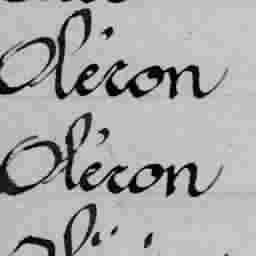 Oléron
Oléron